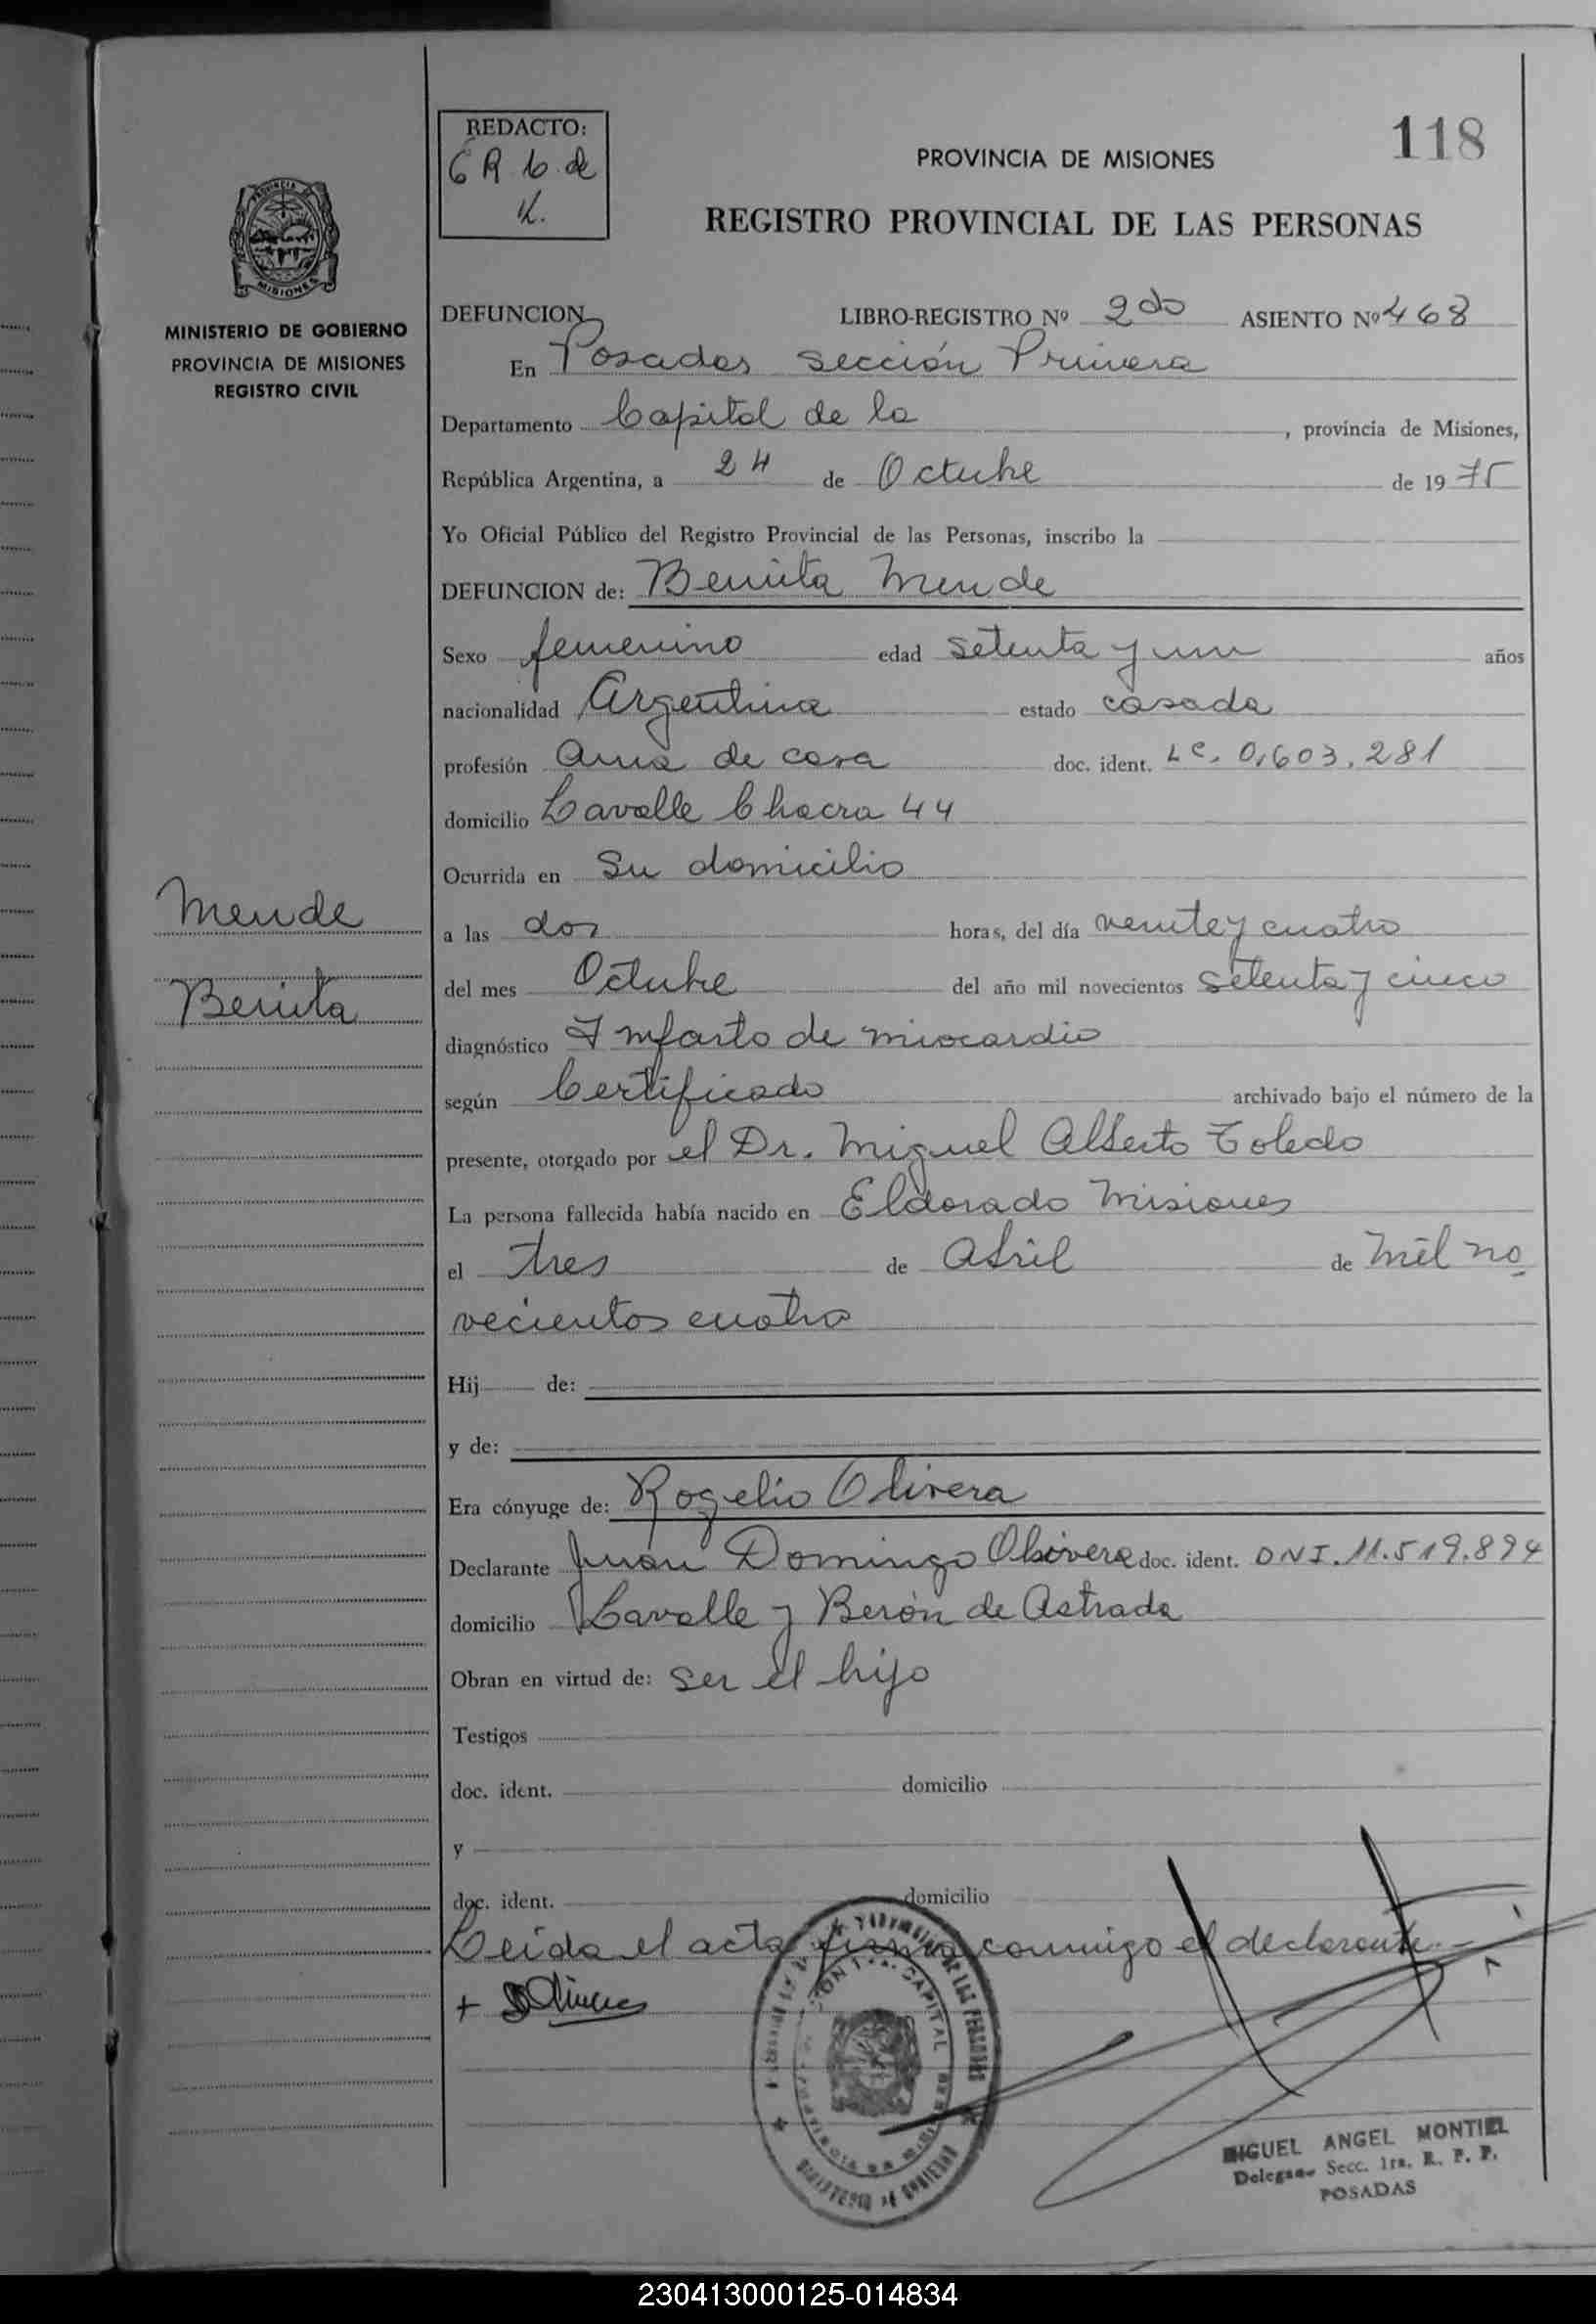 118
REDACTO:
PROVINCIA DE MISIONES
REGISTRO PROVINCIAL DE LAS PERSONAS
MINISTERIO DE GOBIERNO
PROVINCIA DE MISIONES
REGISTRO CIVIL
DEFUNCION LIBRO-REGISTRO Nº 2do ASIENTO Nº 468
En Posadas Sección Primera
Departamento Capital de la, provincia de Misiones,
República Argentina, a 24 de Octubre de 1975
Yo Oficial Público del Registro Provincial de las Personas, inscribo la
DEFUNCION de: Benita Mende
Sexo femenino edad setenta y un años
nacionalidad Argentina estado casada
profesión Ama de casa doc. ident. LC. 0,603.281
domicilio Lavalle Chacra 44
Ocurrida en Su domicilio
Mende
Benita
a las dos horas, del día veinte y cuatro
del mes Octubre del año mil novecientos setenta y cinco
diagnóstico Infarto de miocardio
según Certificado archivado bajo el número de la
presente, otorgado por el Dr. Miguel Alberto Toledo
La persona fallecida había nacido en Eldorado Misiones
el tres de Abril de Mil no
vecientos cuatro
Hij de:
y de:
Era cónyuge de: Rogelio Olivera
Declarante Juan Domingo Olivera doc. ident. DNI. 11.519.894
domicilio Lavalle y Berón de Astrada
Obran en virtud de: ser el hijo
Testigos
doc. ident. domicilio
y
doc. ident. domicilio
Leida el acta firma conmigo el declarante.-
CAPITAL
MIGUEL ANGEL MONTIEL
Delegado Secc. 1ra. R. P. P.
POSADAS
230413000125-014834